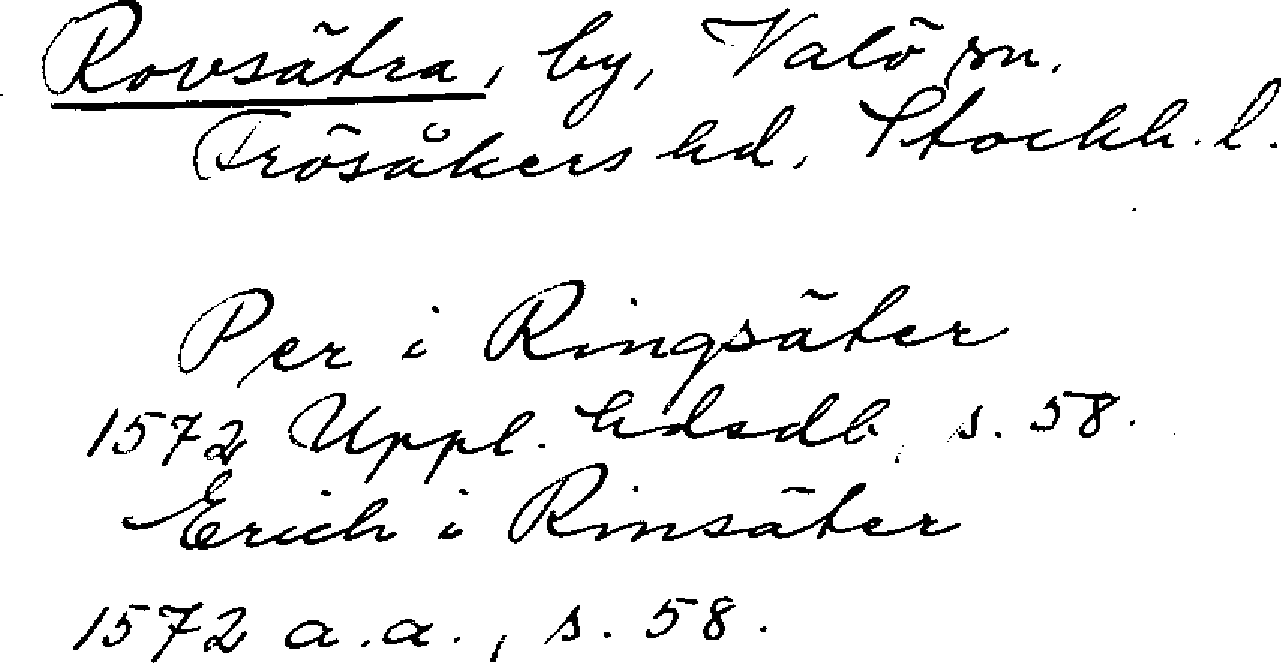 Rovsätra, by, Valö sn.
Frösåkers hd. Stockh. l.
Per i Ringsäter
1572 Uppl. hdsdb, s. 58.
Erich i Rinsäter
1572 a.a., s. 58.